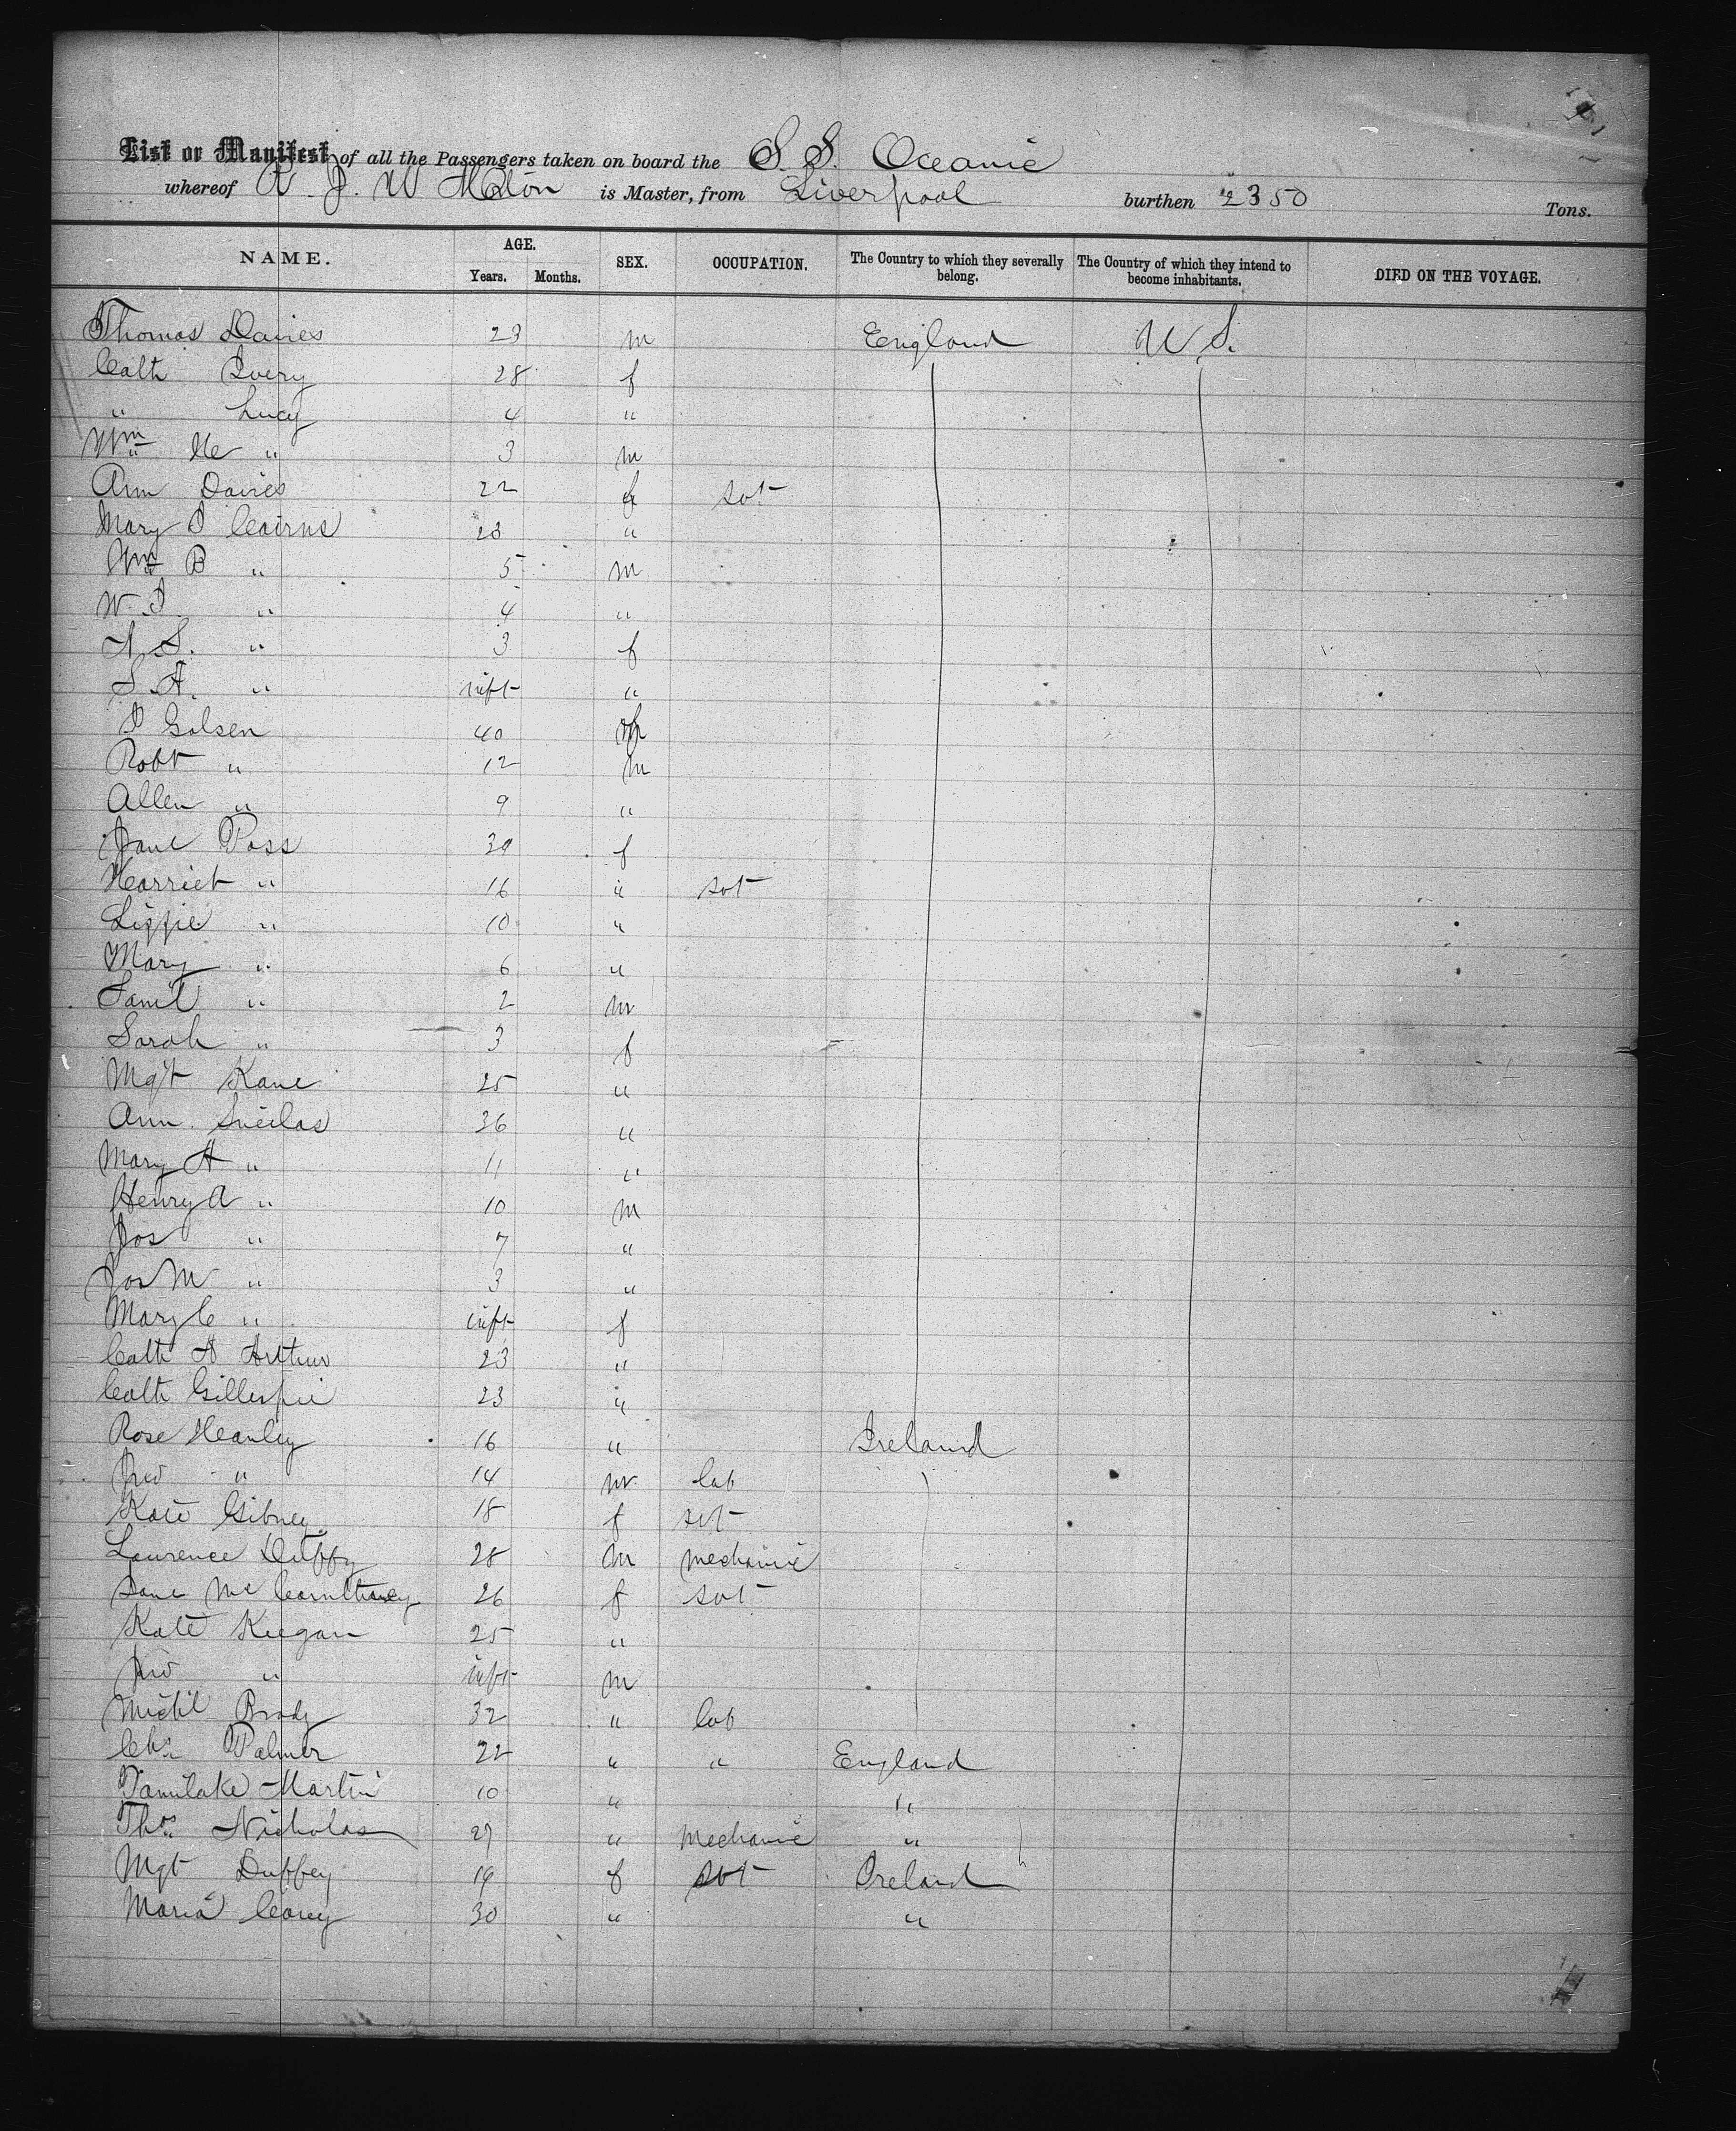 List or Manifest of all the Passengers taken on board the S. S. Oceanic
whereof J. W is Master, from Liverpool burthen 2350 Tons.
NAME. AGE. Years. Months. SEX. OCCUPATION. The Country to which they severally belong. The Country of which they intend to become inhabitants. DIED ON THE VOYAGE.
Thomas Davies 23 m England U.S.
Cath Ivery 28 f
" Lucy 4 "
Wm " 3 m
Ann Davies 22 f svt
Mary J Cairns 23 "
Wm B " 5 m
W. J. " 4 "
A. S. " 3 f
S. A. " inft "
J Golsen 40
Robt " 12 m
Allen " 9 "
Jane Poss 30 f
Harriet " 16 " svt
Lizzie " 10 "
Mary " 6 "
Saml " 2 m
Sarah " 3 f
Mgt Kane 25 "
Ann 36 "
Mary A " 11 "
Henry A " 10 m
Jos " 7 "
Jos M " 3 "
Mary C " inft f
Cath A Arthur 23 "
Cath Gillespie 23 "
Rose Heanley 16 " Ireland
Jno " 14 m lab
Kate Gibney 18 f svt
Laurence Duffy 28 m mechanic
Jane Mc 26 f svt
Kate Keegan 25 "
Jno " inft m
Michl Brady 32 " lab
Chs Palmer 22 " " England
Martin 10 " "
Thos Nicholas 29 " Mechanic "
Mgt Duffey 19 f svt Ireland
Maria Carey 30 " "